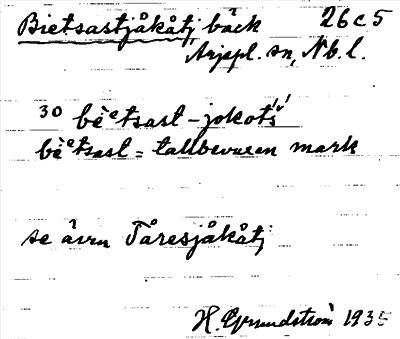 Bietsastjåkåtj bäck 26c5
Arjepl. sn, Nb. l.
30 bèᵉtsast-jokotš́
bèᵉtsast = tallbevuxen mark
se även Tåresjåkåtj
H. Grundström 1935